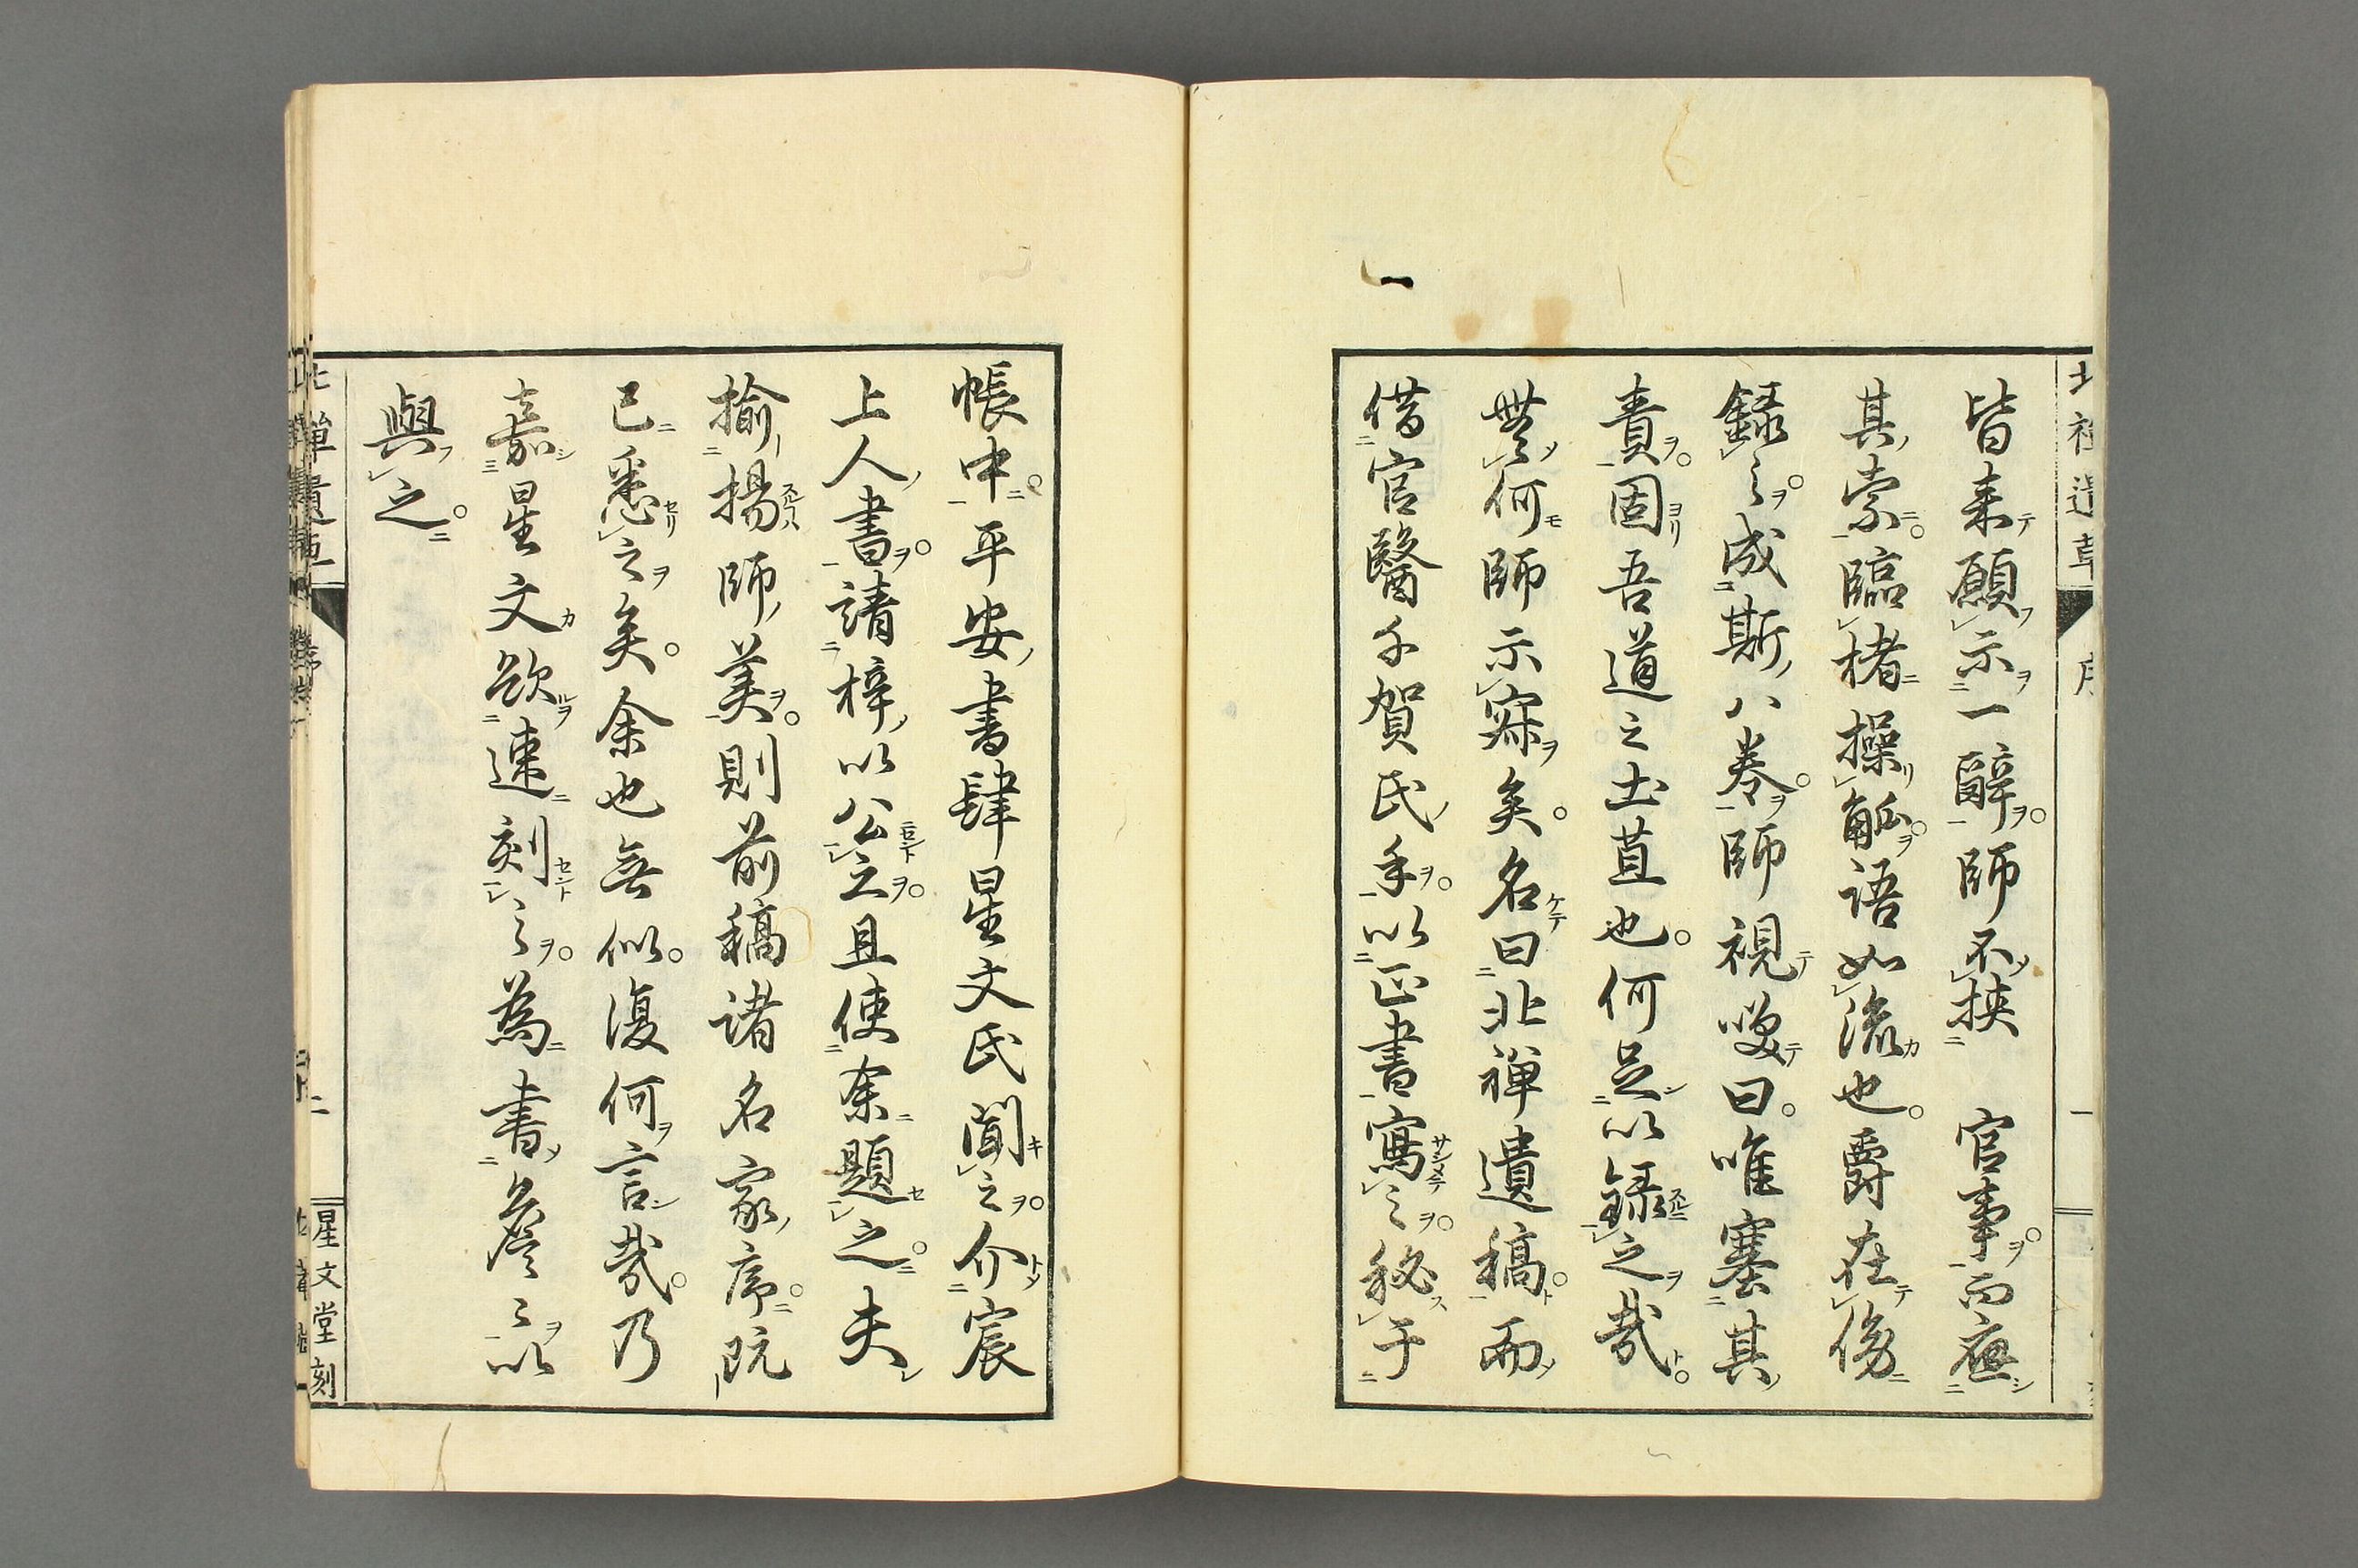 皆来願示一辭師不挟　官事而應
其索臨楮操觚語如流也爵在傍
録之成斯八巻師視唉曰唯塞其
責固吾道之土苴也何足以録之哉
無何師示寂矣名曰北禅遺稿而
借官醫千賀氏手以正書寫之秘于
帳中平安書肆星文氏聞之介宸
上人書請梓以公之且使余題之夫
揄揚師美則前稿諸名家序既
已悉之矣余也無似復何言哉乃
嘉星文欲速刻之為書以
與之
北禅遺草
序
一
二
星文堂刻